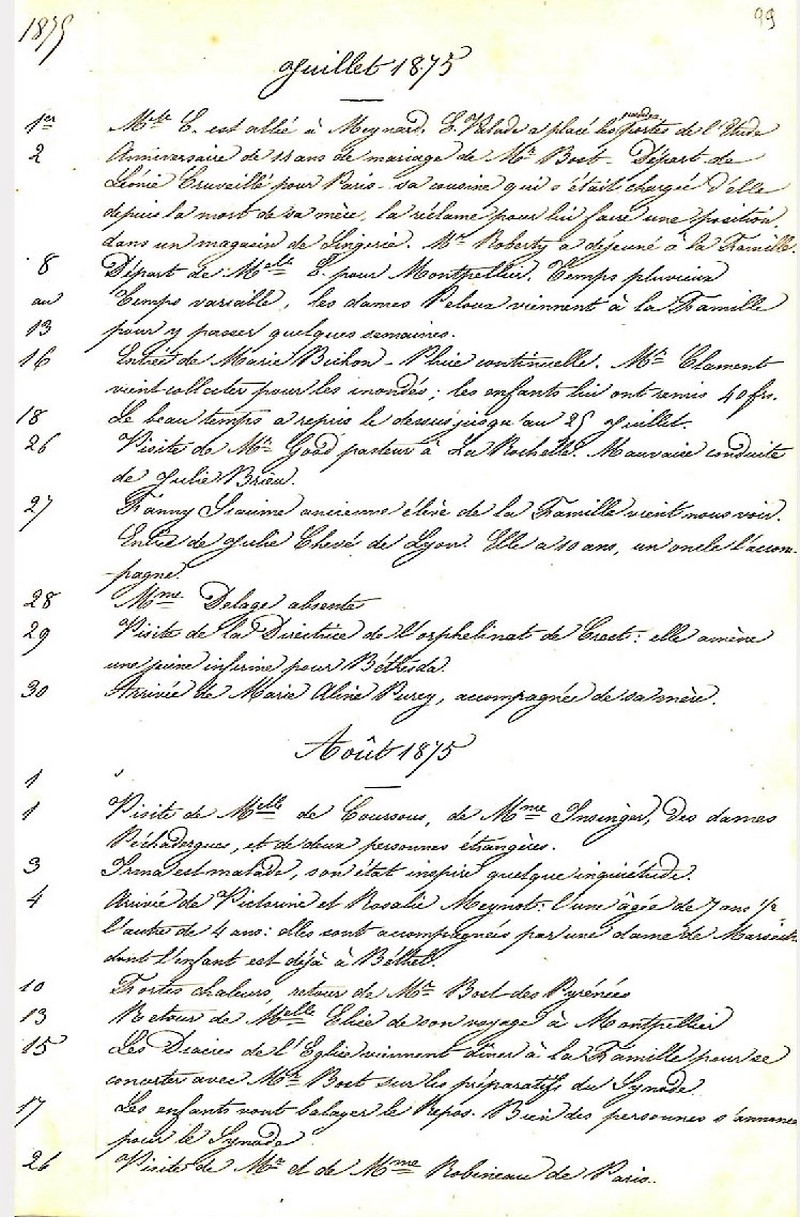 1875
99
Juillet 1875
1er Mlle E. est allée à Meynard. E. Valade a placé les portes de l'Etude
2 Anniversaire de 14 ans de mariage de Mr Bost. Départ de
Léonie Cruveillé pour Paris - sa cousine qui s'était chargée d'elle
depuis la mort de sa mère, la réclame pour lui faire une position
dans un magasin de Lingerie. Mr Roberty a déjeuné à la Famille.
8 Départ de Melle E. pour Montpellier. Temps pluvieux
au Temps variable, les dames Peloux viennent à la Famille
13 pour y passer quelques semaines.
16 Entrée de Marie Bichon - Pluie continuelle. Mr Clament
vient collecter pour les inondés ; les enfants lui ont remis 40 frs.
18 Le beau temps a repris le dessus jusqu'au 25 Juillet.
26 Visite de Mr Good pasteur à La Rochelle. Mauvaise conduite
de Julie Brieu.
27 Fanny Siaume ancienne élève de la Famille vient nous voir.
Entrée de Julie Chevé de Lyon. Elle a 10 ans, un oncle l'accom-
-pagne.
28 Mme Delage absente
29 Visite de la Directrice de l'orphelinat de Crest : elle amène
une jeune infirme pour Béthesda.
30 Arrivée de Marie Aline Purey, accompagnée de sa mère.
Août 1875
1
1 Visite de Melle de Coursous, de Mme Insinger, des dames
Péchadergues, et de deux personnes étrangères.
3 Irma est malade, son état inspire quelque inquiétude.
4 Arrivée de Victorine et Rosalie Meynot : l'une âgée de 7 ans 1/2
l'autre de 4 ans : elles sont accompagnées par une dame de
dont l'enfant est déjà à Béthel.
10 Fortes chaleurs, retour de Mr Bost des Pyrénées
13 Retour de Melle Elise de son voyage à Montpellier
15 Les Diacres de l'Eglise viennent dîner à la Famille pour se
concerter avec Mr Bost sur les préparatifs du Synode.
17 Les enfants vont balayer le Repos. Bien des personnes s'annoncent
pour le Synode
26 Visite de Mr et de Mme Robineau de Paris.